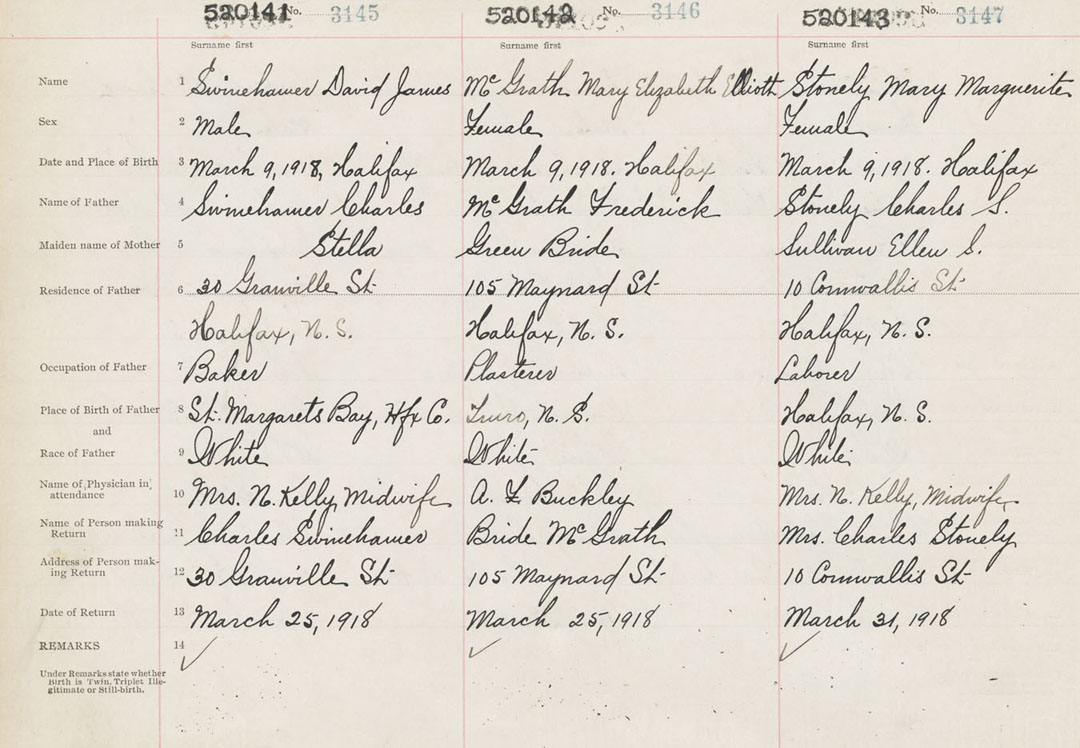 520141 No. 3145 520142 No. 3146 520143 No. 3147
Surname first Surname first Surname first
Name 1 Swinehamer David James McGrath Mary Elizabeth Elliott Stonely Mary Marguerite
Sex 2 Male Female Female
Date and Place of Birth 3 March 9, 1918, Halifax March 9, 1918. Halifax March 9, 1918. Halifax
Name of Father 4 Swinehamer Charles McGrath Frederick Stonely Charles S.
Maiden name of Mother 5 Stella Green Bride Sullivan Ellen S.
Residence of Father 6 30 Granville St. 105 Maynard St. 10 Cornwallis St.
Halifax, N. S. Halifax, N. S. Halifax, N. S.
Occupation of Father 7 Baker Plasterer Laborer
Place of Birth of Father 8 St. Margarets Bay, Hfx Co. Truro, N. S. Halifax, N. S.
and
Race of Father 9 White White White
Name of Physician in attendance 10 Mrs. N. Kelly, Midwife A. F. Buckley Mrs. N. Kelly, Midwife
Name of Person making Return 11 Charles Swinehamer Bride McGrath Mrs. Charles Stonely
Address of Person mak-
ing Return 12 30 Granville St. 105 Maynard St. 10 Cornwallis St.
Date of Return 13 March 25, 1918 March 25, 1918 March 31, 1918
REMARKS 14 ✓ ✓ ✓
Under Remarks state whether
Birth is Twin, Triplet Ille-
gitimate or Still-birth.